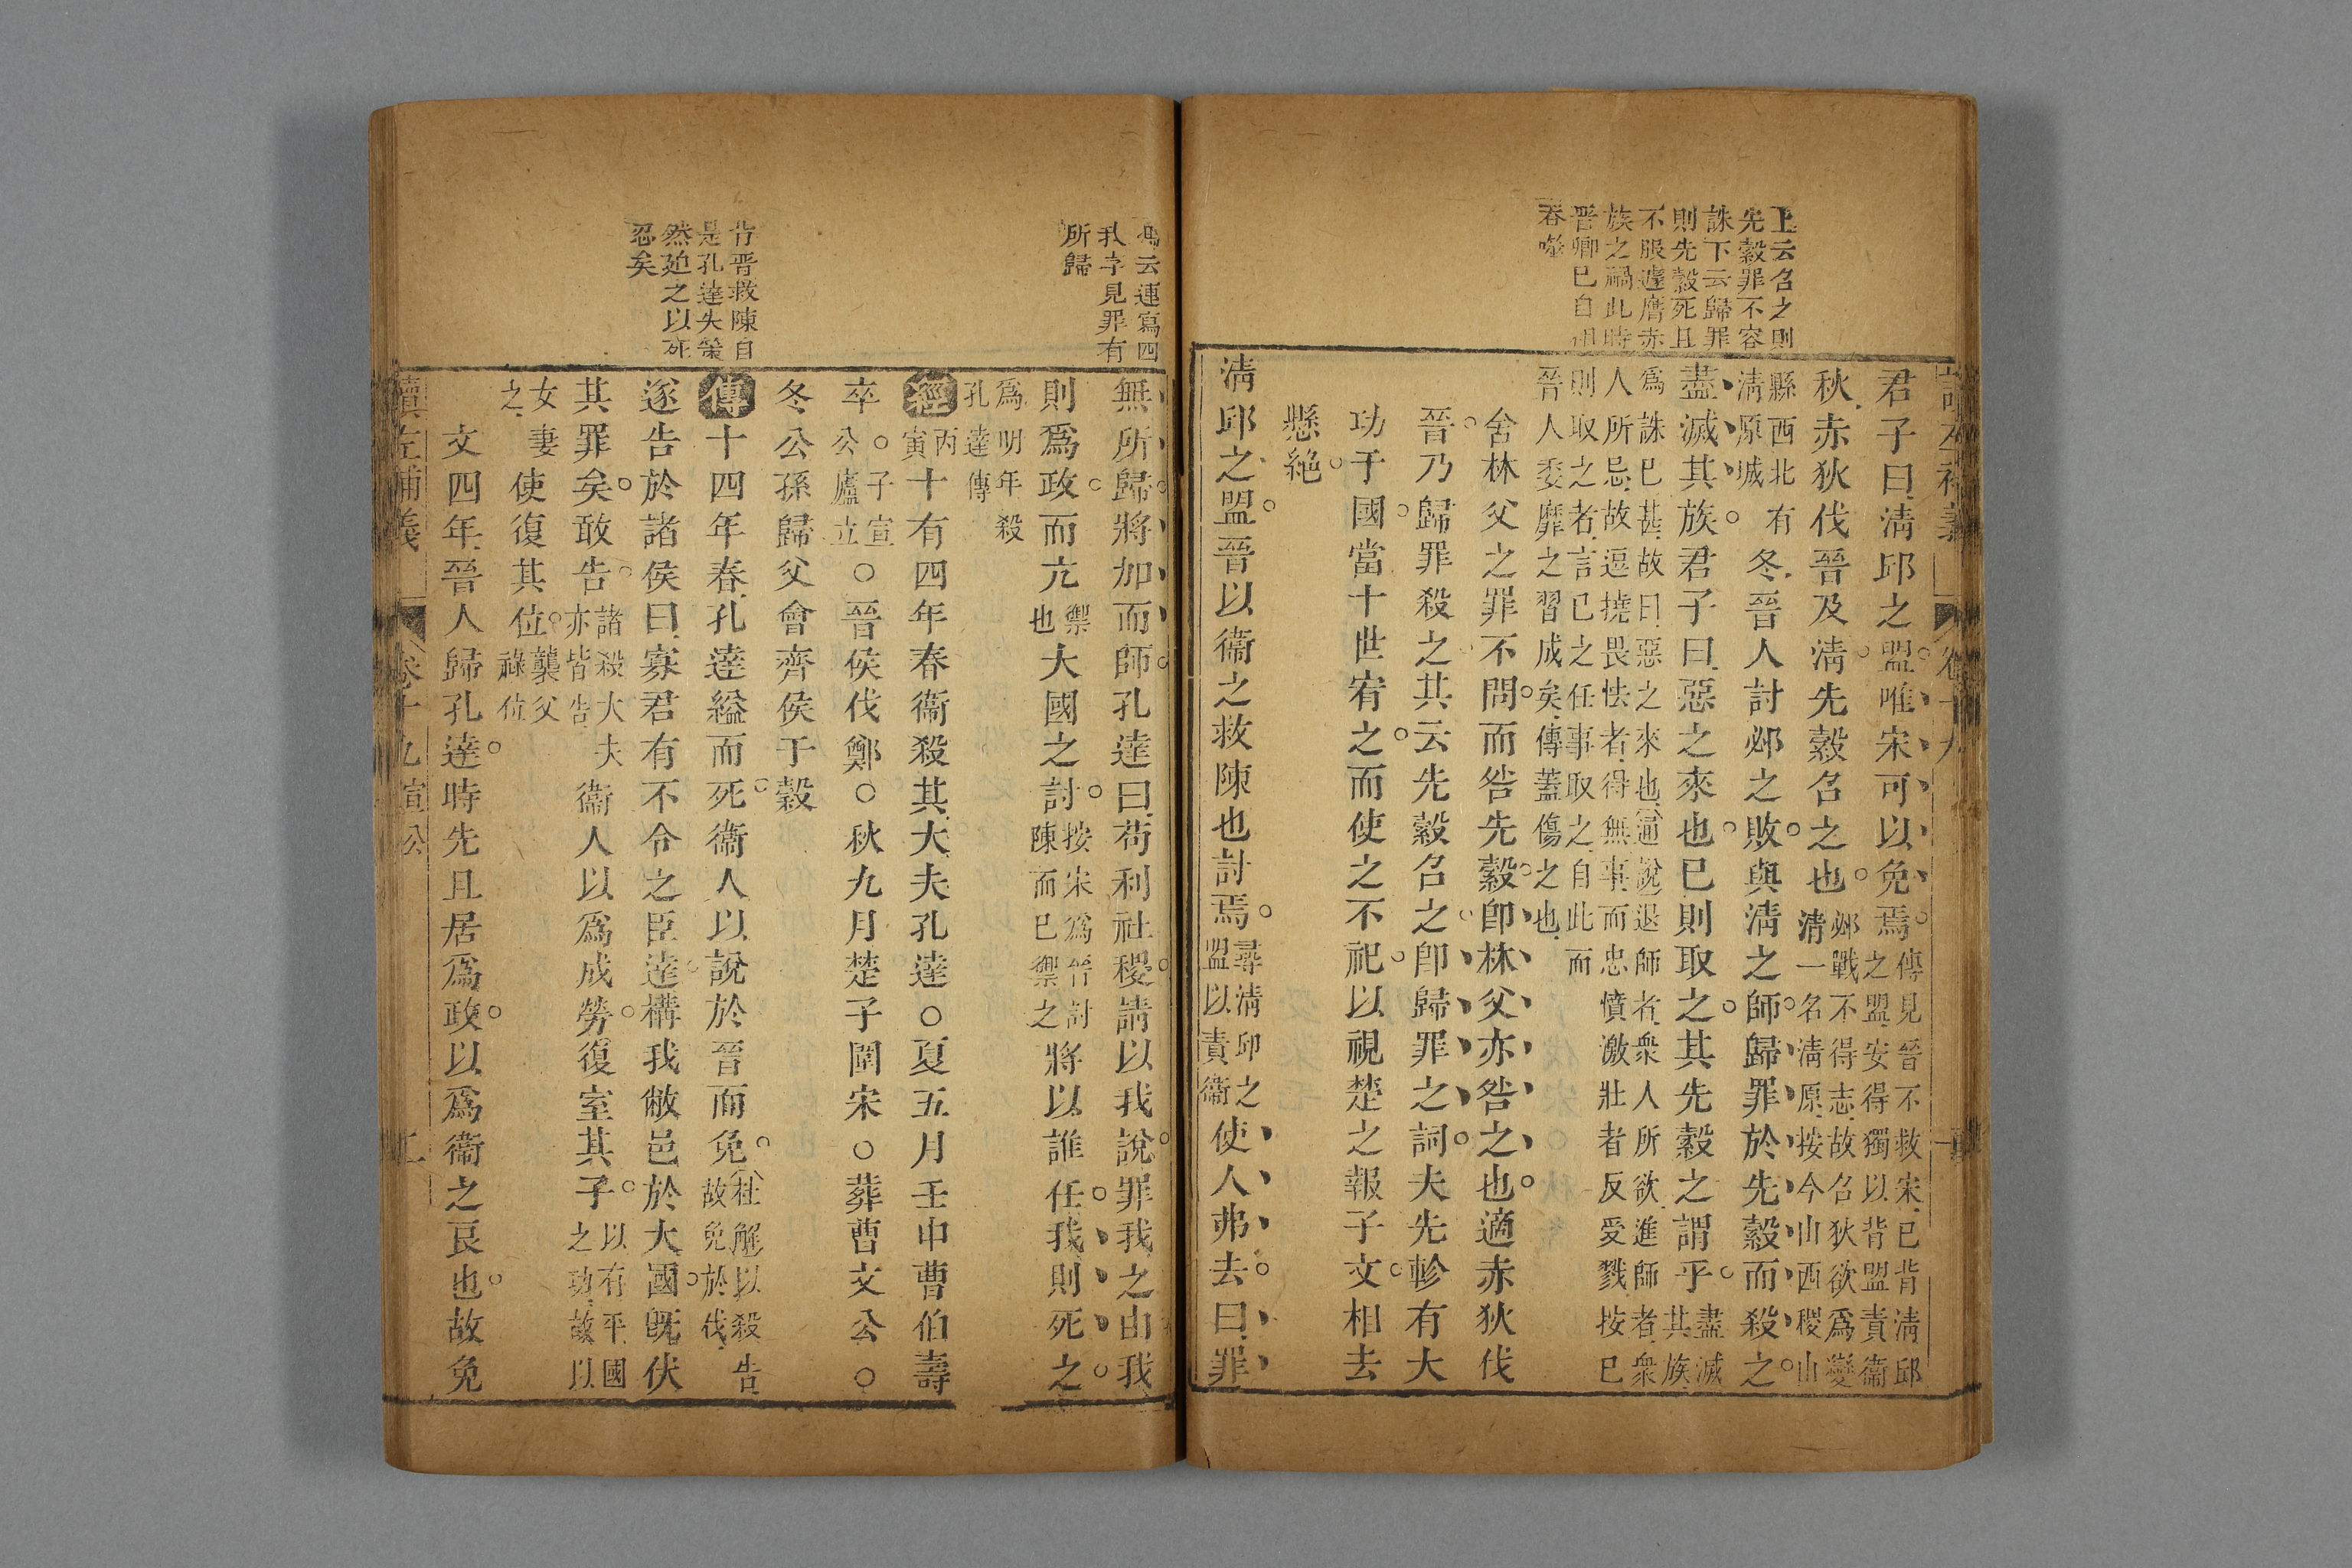 上云召之則
先縠罪不容
誅下云歸罪
則先縠死且
不服遽膺赤
族之禍此時
晋卿已自相
吞噬
君子曰清邱之盟唯宋可以免焉傳見晉不救宋已背清邱之盟安得獨以背盟責衞
秋赤狄伐晉及清先縠召之也邲戰不得志故召狄欲爲變清一名清原按今山西稷山
縣西北有清原城冬晉人討邲之敗與清之師歸罪於先縠而殺之
盡滅其族君子曰惡之來也已則取之其先縠之謂乎盡滅其族
爲誅已甚故曰惡之來也通說退師者衆人所欲進師者衆
人所忌故逗撓畏怯者得無事而忠憤激壯者反受戮按已
則取之者言已之任事取之自此而
晉人委靡之習成矣傳蓋傷之也
舍林父之罪不問而咎先縠卽林父亦咎之也適赤狄伐
晉乃歸罪殺之其云先縠召之卽歸罪之詞夫先軫有大
功于國當十世宥之而使之不祀以視楚之報子文相去
懸絶
清邱之盟晉以衞之救陳也討焉尋清邱之盟以責衞使人弗去曰罪
馮云連寫四
我字見罪有
所歸
無所歸將加而師孔達曰苟利社稷請以我說罪我之由我
則爲政而亢禦也大國之討按宋爲晉討陳而已禦之將以誰任我則死之
爲明年殺
孔達傳
經丙寅十有四年春衞殺其大夫孔達○夏五月壬申曹伯壽
卒子宣公廬立○晉侯伐鄭○秋九月楚子圍宋○葬曹文公○
冬公孫歸父會齊侯于穀
背晋救陳自
是孔達失策
然廹之以死
忍矣
傳十四年春孔達縊而死衞人以說於晉而免杜解以殺告故免於伐
遂告於諸侯曰寡君有不令之臣達構我敝邑於大國旣伏
其罪矣敢告諸殺大夫亦皆告衞人以爲成勞復室其子以有平國之功故以
女妻之使復其位襲父祿位
文四年晉人歸孔達時先且居爲政以爲衞之良也故免
讀左補義
卷十九宣公